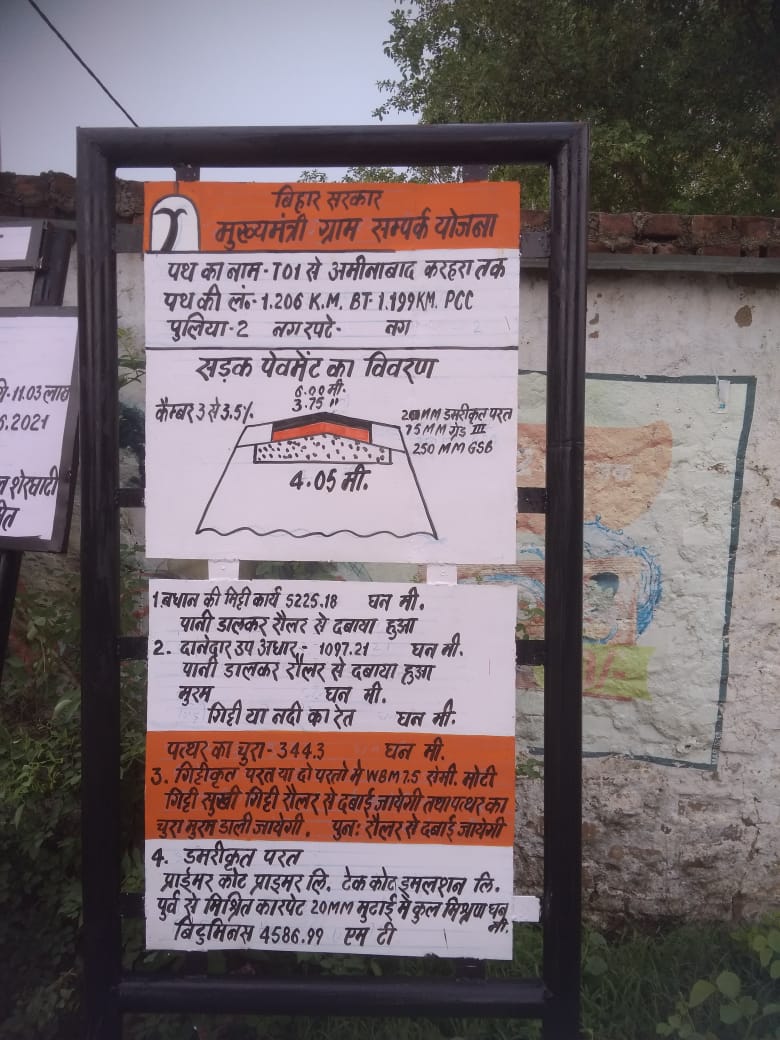 बिहार सरकार
मुख्यमंत्री ग्राम सम्पर्क योजना
पथ का नाम - T01 से अमीनाबाद करहरा तक
पथ की लं०- 1.206 K.M. BT- 1.199KM. PCC
पुलिया-2 नग रपटे- नग
सड़क पेवमेंट का विवरण
6.00 मी.
3.75 "
कैम्बर 3 से 3.5%
20MM डमरीकृत परत
75MM ग्रेड III
250 MM GSB
4.05 मी.
1. बधान की मिट्टी कार्य 5225.18 घन मी.
पानी डालकर रौलर से दबाया हुआ
2. दानेदार उप अधार - 1097.21 घन मी.
पानी डालकर रौलर से दबाया हुआ
मुरम घन मी.
गिट्टी या नदी का रेत घन मी.
पत्थर का चुरा - 344.3 घन मी.
3. गिट्टीकृत परत या दो परतो मे WBM 7.5 सेमी. मोटी
गिट्टी सुखी गिट्टी रौलर से दबाई जायेगी तथा पत्थर का
चुरा मुरम डाली जायेगी, पुन: रौलर से दबाई जायेगी
4. डमरीकृत परत
प्राईमर कोट प्राइमर लि. टेक कोट इमलशन लि.
पुर्व से मिश्रित कारपेट 20MM मुटाई मे कुल मिश्रण घन
मी.
बिटुमिनस 4586.99 एम टी
- 11.03 लाख
6.2021
शेरघाटी